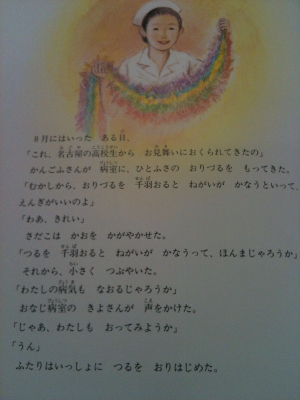 8月にはいった　ある日、
「これ、名古屋の高校生から　お見舞いにおくられてきたの」
かんごふさんが　病室に、ひとふさの　おりづるを　もってきた。
「むかしから、おりづるを　千羽おると　ねがいが　かなうといって、
えんぎがいいのよ」
「わあ、きれい」
さだこは　かおを　かがやかせた。
「つるを　千羽おると　ねがいが　かなうって、ほんまじゃろうか」
それから、小さく　つぶやいた。
「わたしの病気も　なおるじゃろうか」
おなじ病室の　きよさんが　声をかけた。
「じゃあ、わたしも　おってみようか」
「うん」
ふたりはいっしょに　つるを　おりはじめた。